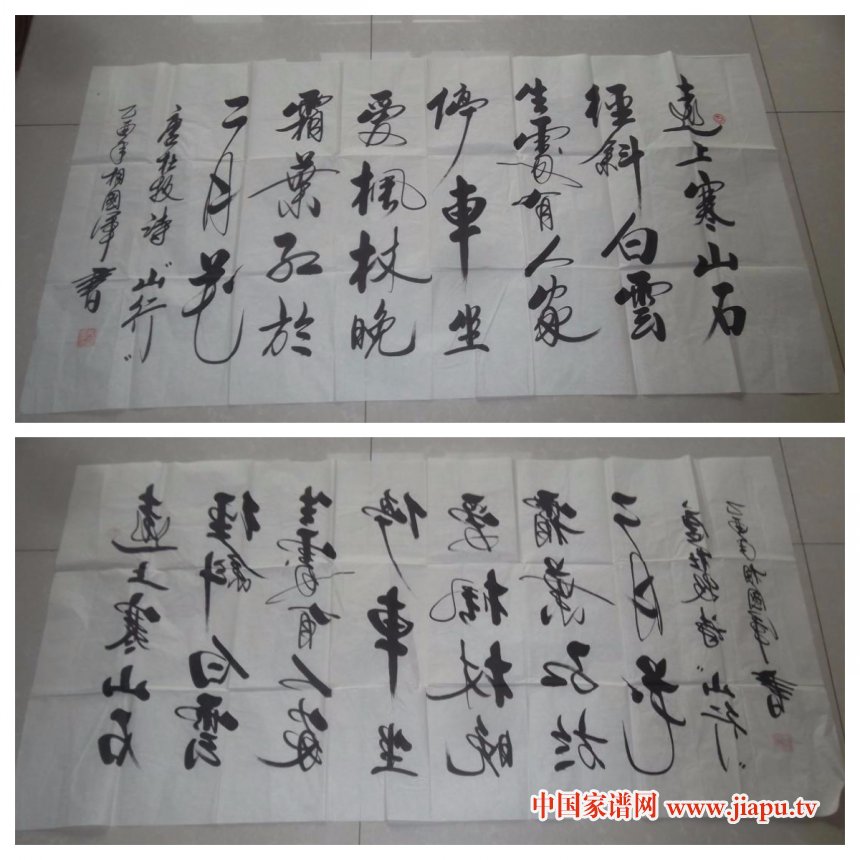 遠上寒山石
徑斜白雲
生處有人家
停車坐
愛楓林晚
霜葉紅於
二月花
唐杜牧詩"山行"
乙酉年相國書
遠上寒山石
徑斜白雲
生處有人家
停車坐
愛楓林晚
霜葉紅於
二月花
唐杜牧詩"山行"
乙酉年相國書
中国家谱网 www.jiapu.tv